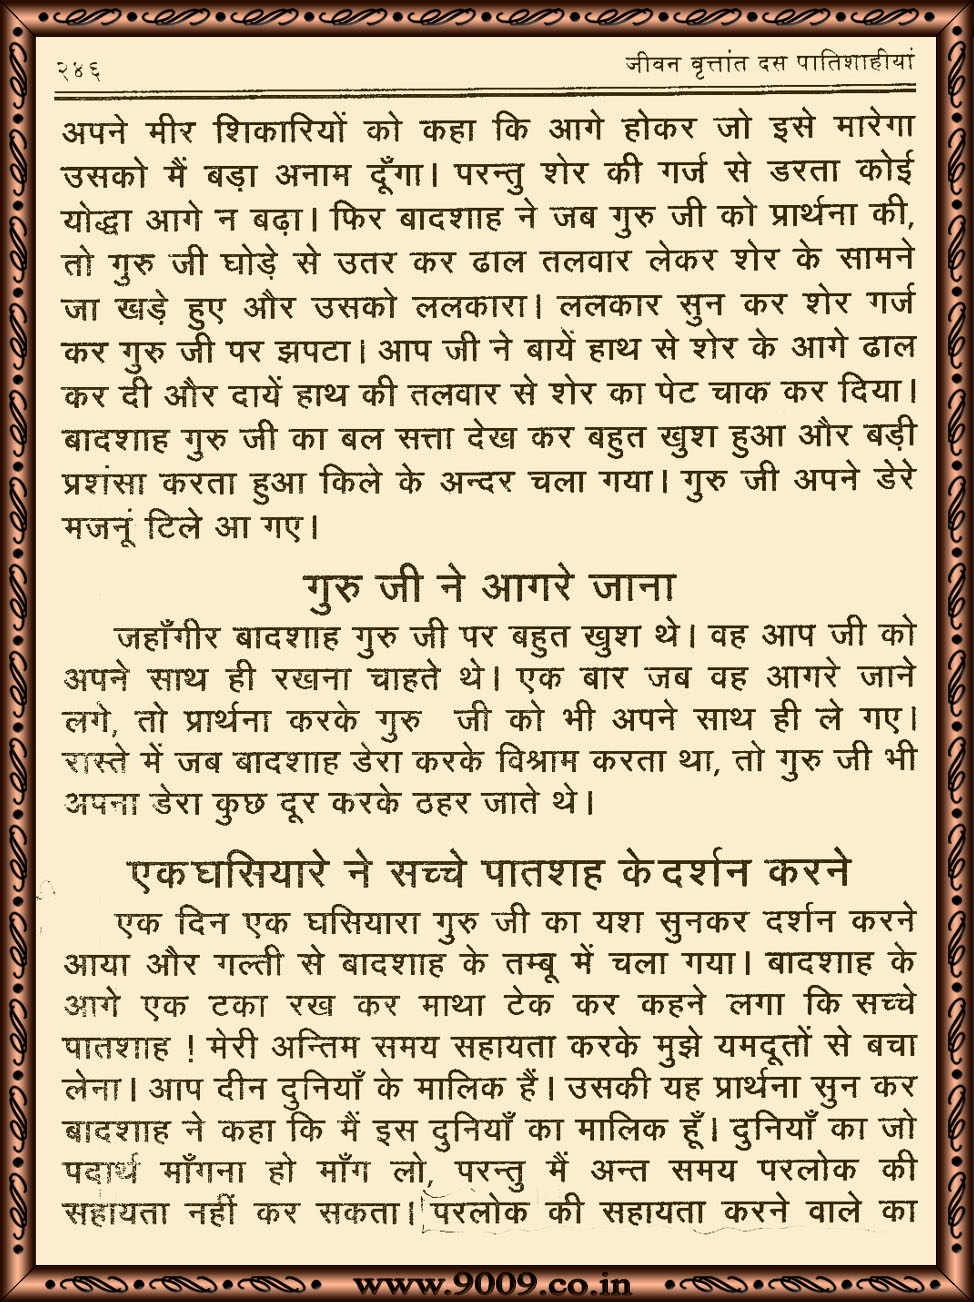 २४६ जीवन वृत्तांत दस पातिशाहीयां
अपने मीर शिकारियों को कहा कि आगे होकर जो इसे मारेगा
उसको मैं बड़ा अनाम दूँगा। परन्तु शेर की गर्ज से डरता कोई
योद्धा आगे न बढ़ा। फिर बादशाह ने जब गुरु जी को प्रार्थना की,
तो गुरु जी घोड़े से उतर कर ढाल तलवार लेकर शेर के सामने
जा खड़े हुए और उसको ललकारा। ललकार सुन कर शेर गर्ज
कर गुरु जी पर झपटा। आप जी ने बायें हाथ से शेर के आगे ढाल
कर दी और दायें हाथ की तलवार से शेर का पेट चाक कर दिया।
बादशाह गुरु जी का बल सत्ता देख कर बहुत खुश हुआ और बड़ी
प्रशंसा करता हुआ किले के अन्दर चला गया। गुरु जी अपने डेरे
मजनूं टिले आ गए।
गुरु जी ने आगरे जाना
जहाँगीर बादशाह गुरु जी पर बहुत खुश थे। वह आप जी को
अपने साथ ही रखना चाहते थे। एक बार जब वह आगरे जाने
लगे, तो प्रार्थना करके गुरु जी को भी अपने साथ ही ले गए।
रास्ते में जब बादशाह डेरा करके विश्राम करता था, तो गुरु जी भी
अपना डेरा कुछ दूर करके ठहर जाते थे।
एक घसियारे ने सच्चे पातशह के दर्शन करने
एक दिन एक घसियारा गुरु जी का यश सुनकर दर्शन करने
आया और गल्ती से बादशाह के तम्बू में चला गया। बादशाह के
आगे एक टका रख कर माथा टेक कर कहने लगा कि सच्चे
पातशाह ! मेरी अन्तिम समय सहायता करके मुझे यमदूतों से बचा
लेना। आप दीन दुनियाँ के मालिक हैं। उसकी यह प्रार्थना सुन कर
बादशाह ने कहा कि मैं इस दुनियाँ का मालिक हूँ। दुनियाँ का जो
पदार्थ माँगना हो माँग लो, परन्तु मैं अन्त समय परलोक की
सहायता नहीं कर सकता। परलोक की सहायता करने वाले का
www.9009.co.in